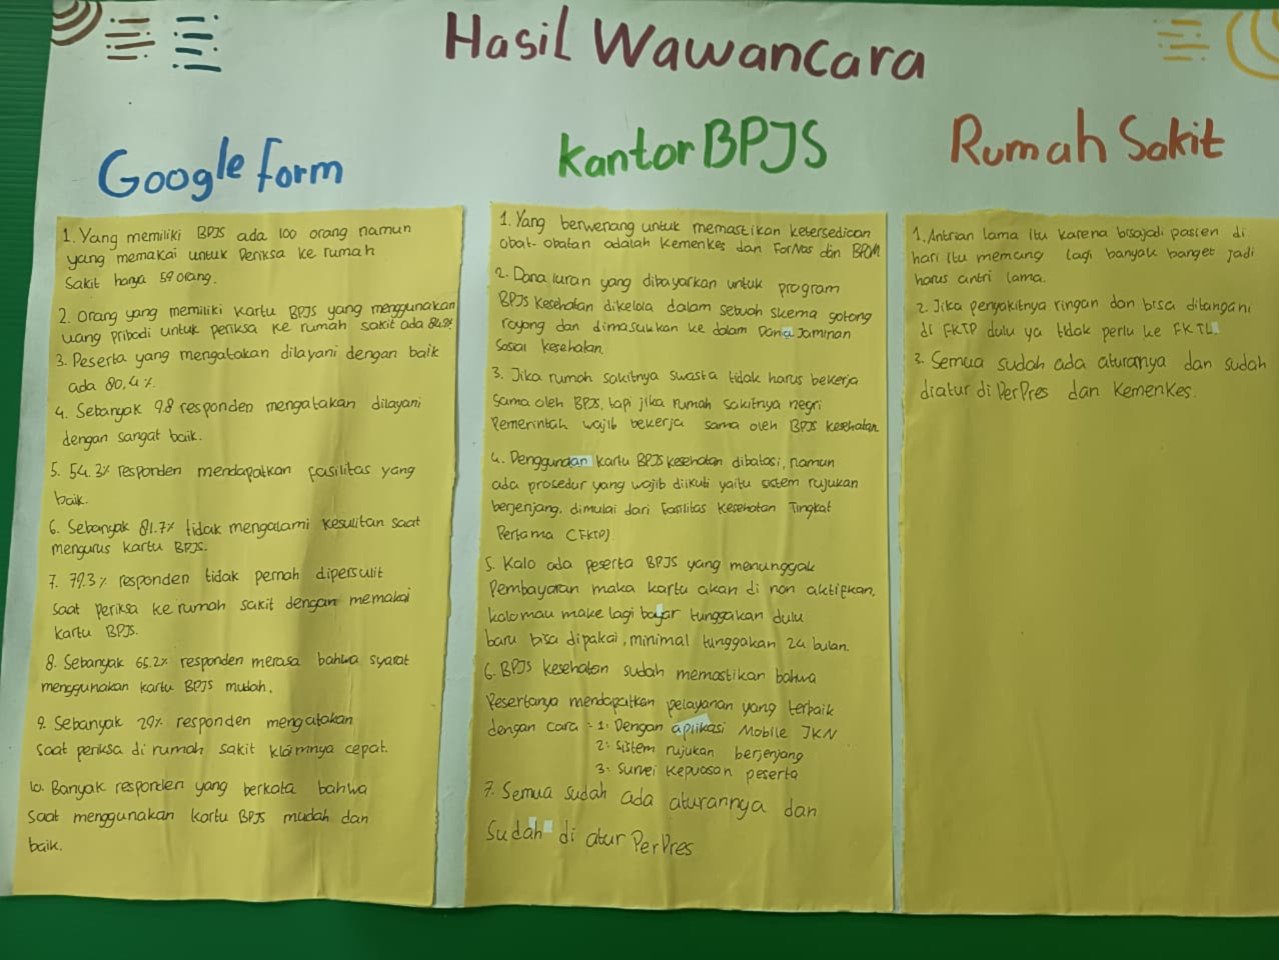 Hasil Wawancara
Google Form
1. Yang memiliki BPJS ada 100 orang namun
yang memakai untuk Periksa ke rumah
Sakit hanya 59 orang.
2. Orang yang memiliki kartu BPJS yang menggunakan
uang pribadi untuk periksa ke rumah sakit ada
3. Peserta yang mengatakan dilayani dengan baik
ada 80,4%.
4. Sebanyak 98 responden mengatakan dilayani
dengan sangat baik.
5. 54.3% responden mendapatkan fasilitas yang
baik.
6. Sebanyak 81.7% tidak mengalami kesulitan saat
mengurus kartu BPJS.
7. 79.3% responden tidak pernah dipersulit
saat periksa ke rumah sakit dengan memakai
kartu BPJS.
8. Sebanyak 65.2% responden merasa bahwa syarat
menggunakan kartu BPJS mudah.
9. Sebanyak 29% responden mengatakan
saat periksa di rumah sakit klaimnya cepat.
10. Banyak responden yang berkata bahwa
saat menggunakan kartu BPJS mudah dan
baik.
Kantor BPJS
1. Yang berwenang untuk memastikan ketersediaan
obat-obatan adalah Kemenkes dan ForNas dan BPOM
2. Dana iuran yang dibayarkan untuk program
BPJS Kesehatan dikelola dalam sebuah skema gotong
royong dan dimasukkan ke dalam Dana Jaminan
Sosial kesehatan.
3. Jika rumah sakitnya swasta tidak harus bekerja
sama oleh BPJS, tapi jika rumah sakitnya negri
Pemerintah wajib bekerja sama oleh BPJS kesehatan.
4. Penggunaan kartu BPJS kesehatan dibatasi, namun
ada prosedur yang wajib diikuti yaitu sistem rujukan
berjenjang, dimulai dari Fasilitas Kesehatan Tingkat
Pertama (FKTP).
5. Kalo ada peserta BPJS yang menunggak
Pembayaran maka kartu akan di non aktifkan,
kalo mau make lagi bayar tunggakan dulu
baru bisa dipakai, minimal tunggakan 24 bulan.
6. BPJS kesehatan sudah memastikan bahwa
Pesertanya mendapatkan pelayanan yang terbaik
dengan cara : 1. Dengan aplikasi Mobile JKN
2. Sistem rujukan berjenjang
3. Survei kepuasan peserta
7. Semua sudah ada aturannya dan
Sudah di atur PerPres
Rumah Sakit
1. Antrian lama itu karena bisa jadi pasien di
hari itu memang lagi banyak banget jadi
harus antri lama.
2. Jika penyakitnya ringan dan bisa ditangani
di FKTP dulu ya tidak perlu ke FKTL
3. Semua sudah ada aturanya dan sudah
diatur di PerPres dan Kemenkes.